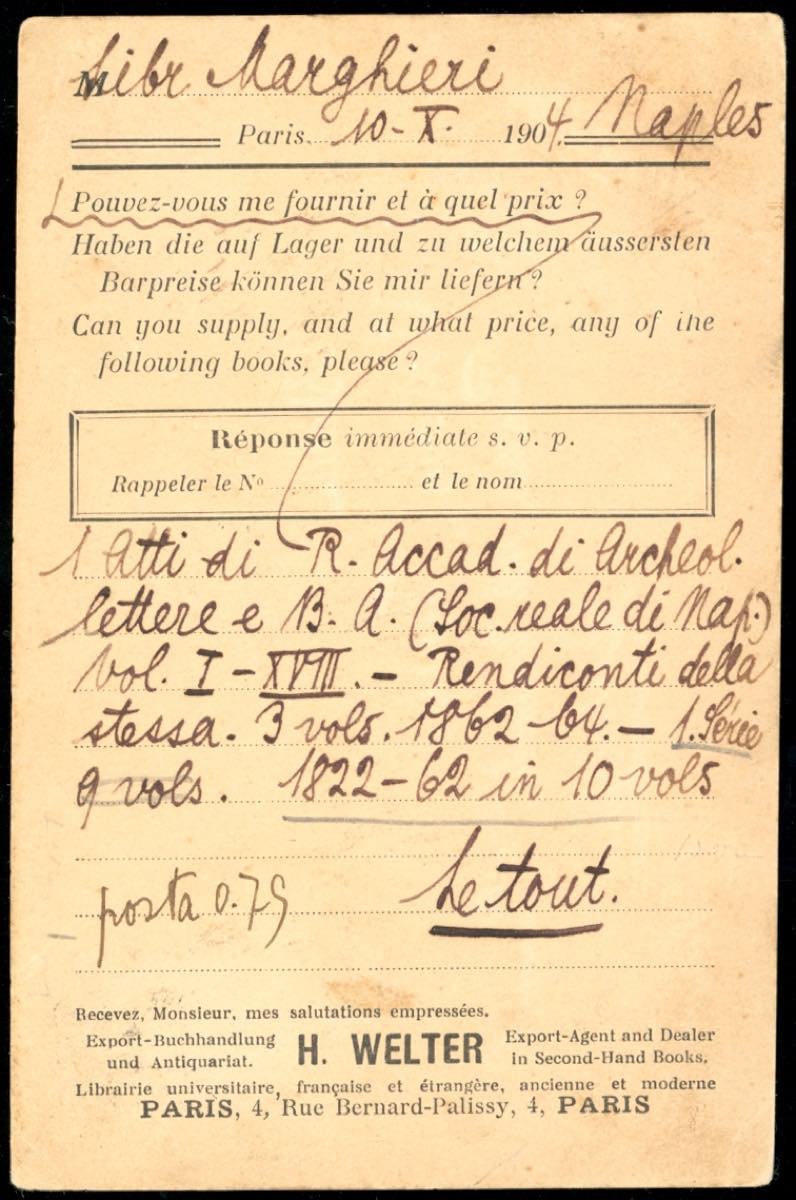 M Libr Marghieri
Paris. 10-X. 1904. Naples
Pouvez-vous me fournir et à quel prix ?
Haben die auf Lager und zu welchem äussersten
Barpreise können Sie mir liefern ?
Can you supply, and at what price, any of the
following books, please ?
Réponse immédiate s. v. p.
Rappeler le No et le nom
1 Atti di R. Accad. di Archeol.
lettere e B. A. (Soc. reale di Nap.)
Vol. I - XVIII. - Rendiconti della
stessa. 3 vols. 1862-64. - 1. Série
9 vols. 1822-62 in 10 vols
Le tout.
posta 0.75
Recevez, Monsieur, mes salutations empressées.
Export-Buchhandlung
und Antiquariat.
H. WELTER
Export-Agent and Dealer
in Second-Hand Books.
Librairie universitaire, française et étrangère, ancienne et moderne
PARIS, 4, Rue Bernard-Palissy, 4, PARIS